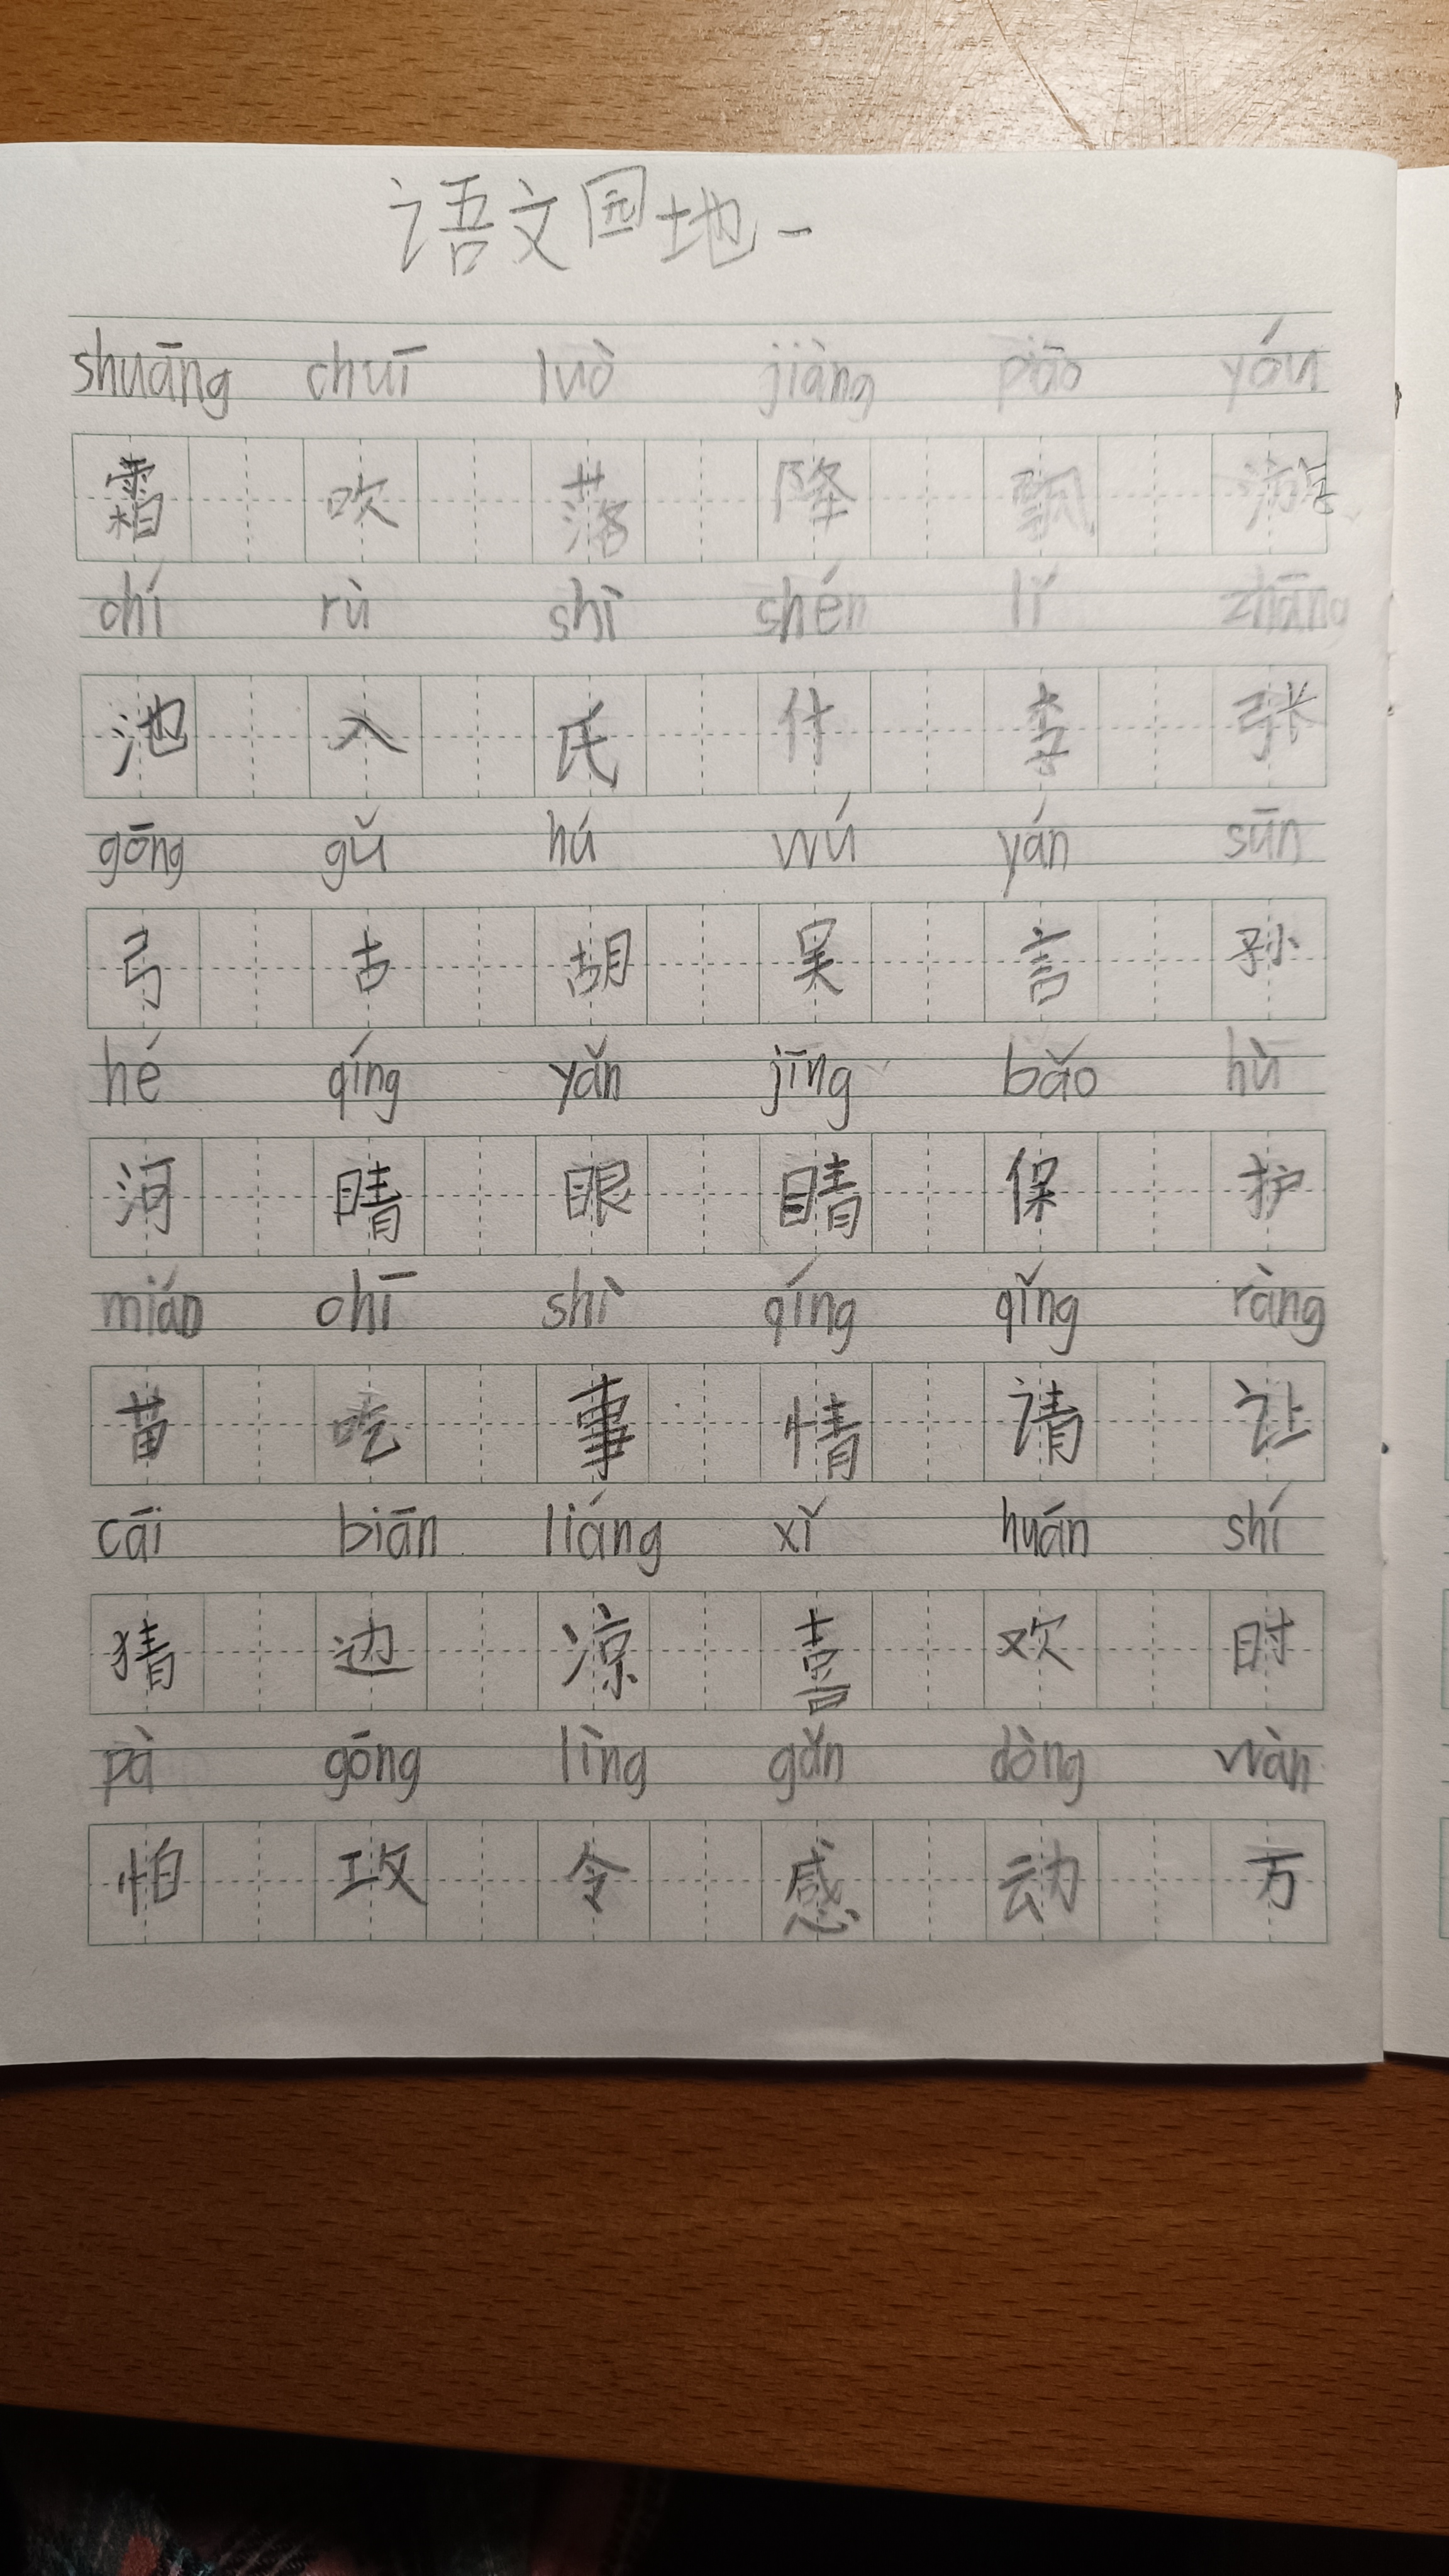 语文园地一
shuāng chuī luò jiàng piāo yóu
霜 吹 落 降 飘 游
chí rù shì shén lǐ zhāng
池 入 氏 什 李 张
gōng gǔ hú wú yán sūn
弓 古 胡 吴 言 孙
hé qíng yǎn jīng bǎo hù
河 晴 眼 睛 保 护
mián chī shì qíng qǐng ràng
苗 吃 事 情 请 让
cāi biān liáng xǐ huān shí
猜 边 凉 喜 欢 时
pà gōng lìng gǎn dòng wàn
怕 攻 令 感 动 万